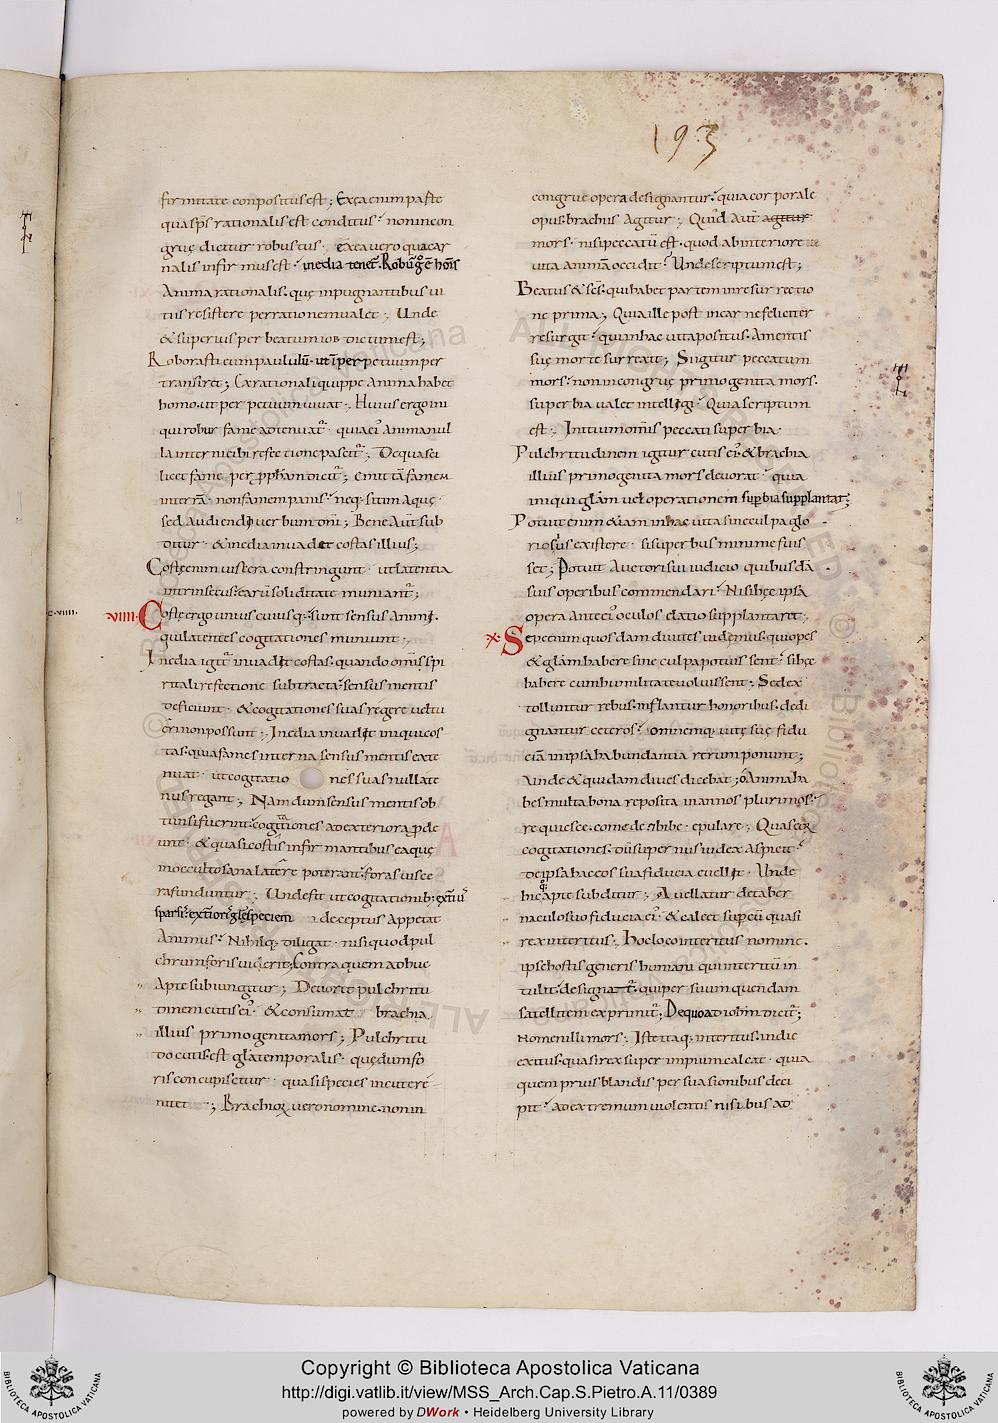 193
firmitate conpositus est; Ex ea enim parte
qua sps rationalis est conditus. non incon
gruę dicitur robustus. Ex ea vero qua car
nalis infirmus est. inedia tenet. Robur g ē hōis
Anima rationalis. quę inpugnantibus vi
tiis resistere per rationem valet. Unde
& superius per beatum iob dictum est;
Roborasti eum paululū. ut in perpetuum per
transiret; Ca rationali quippe anima habet
homo. ut in perpetuum vivat. Huius ergo ini
qui robur fame adtenuat. quia eius anima nul
la interni cibi refectione pascit. De qua sci
licet fame per prophetam dicit; Emittā famem
in terrā. non famem panis. neq; sitim aquę.
sed audiendi verbum dni; Bene aut sub
ditur. & inedia invadet costas illius;
Costę enim viscera constringunt. ut latentia
intrinsecus. earū soliditate muniant;
viiii. Costę ergo unius cuiusq; sunt sensus animi.
qui latentes cogitationes muniunt.
Inedia igit invadit costas. quando omis spi
ritali refectione subtracta. sensus mentis
deficiunt. & cogitationes suas regere vel tu
eri non possunt. Inedia invadit iniqui cos
tas. quia fames interna sensus mentis exte
nuat. ut cogitationes suas nullate
nus regant; Nam dum sensus mentis ob
tunsi fuerint. cogitationes ad exteriora prode
unt. & quasi costis infirmantibus ea quę
in occulto sana latere poterant. foras visce
ra funduntur. Unde fit ut cogitationib; exteri
sparsis. exterioris glę speciem deceptus appetat
Animus. Nihilq; diligat. nisi quod pul
chrum foris viderit; Contra quem adhuc
Apte subiungitur; Devoret pulchritu
dinem cutis ei. & consumat brachia
illius primogenita mors; Pulchritu
do cutis. est gla temporalis. quę dum fo
ris concupiscitur. quasi species in cute re
tinet; Brachiorum vero nomine. non in
congrue opera designantur. quia corporale
opus. brachiis agitur. Quid aut agitur
mors. nisi peccatū est. quod ab interiore
vita animā occidit. Unde scriptum est;
Beatus & scs. qui habet partem in resurrectio
ne prima; Quia ille post in carne feliciter
resurgit. qui in hac vita positus. a mentis
suę morte surrexit; Si igitur peccatum
mors. non incongruę primogenita mors.
superbia valet intelligi. Quia scriptum
est. Initium omis peccati superbia.
Pulchritudinem igitur cutis ei. & brachia
illius primogenita mors devorat. quia
iniqui glam vel operationem supbia supplantat;
Potuit enim etiam in hac vita sine culpa glo
riosus existere. si superbus minime fuis
set; Potuit auctoris sui iudicio quibusdā
suis operibus commendari. Nisi hęc ipsa
opera ante ei oculos elatio supplantaret;
x. Sepe enim quosdam divites videmus. qui opes
& glam habere sine culpa potuissent. si hęc
habere cum humilitate voluissent; Sed ex
tolluntur rebus. inflantur honoribus. dedi
gnantur ceteros. Omnemq; vitę suę fidu
ciā in ipsa habundantia rerum ponunt;
Unde & quidam dives dicebat; Anima ha
bes multa bona reposita in annos plurimos.
requiesce. comede. bibe. epulare; Quas eor
cogitationes. dū supernus iudex aspicit
de ipsa hac eos sua fiducia evellit. Unde
hic apte subditur; Avellatur de taber
naculo suo fiducia ei. & calcet super eū quasi
rex interitus. Hoc loco interitus nomine.
ipse hostis generis humani qui interitū in
tulit. designat. qui per suum quendam
satellitem exprimit; De quo ad iohm dicit;
Nomen illi mors. Iste itaq; interitus. in die
exitus. quasi rex super impium calcat. quia
quem prius blandis persuasionibus deci
pit. ad extremum violentis nisibus ad
Copyright © Biblioteca Apostolica Vaticana
http://digi.vatlib.it/view/MSS_Arch.Cap.S.Pietro.A.11/0389
powered by DWork • Heidelberg University Library